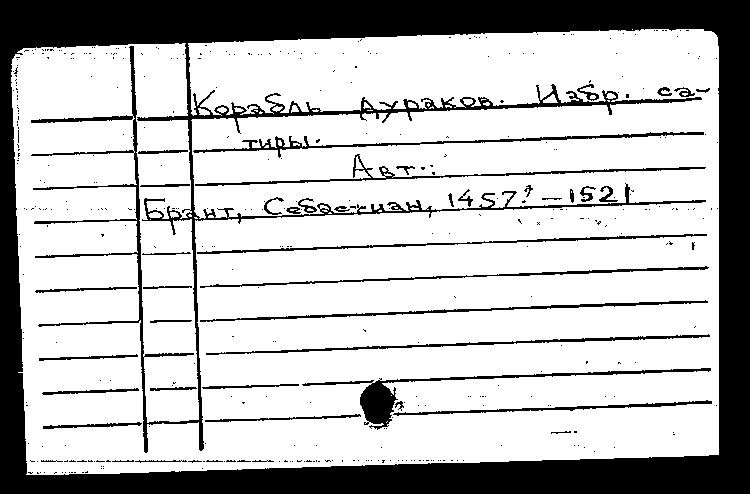 Корабль дураков. Избр. са-
тиры.
Авт.:
Брант, Себастиан, 1457?-1521